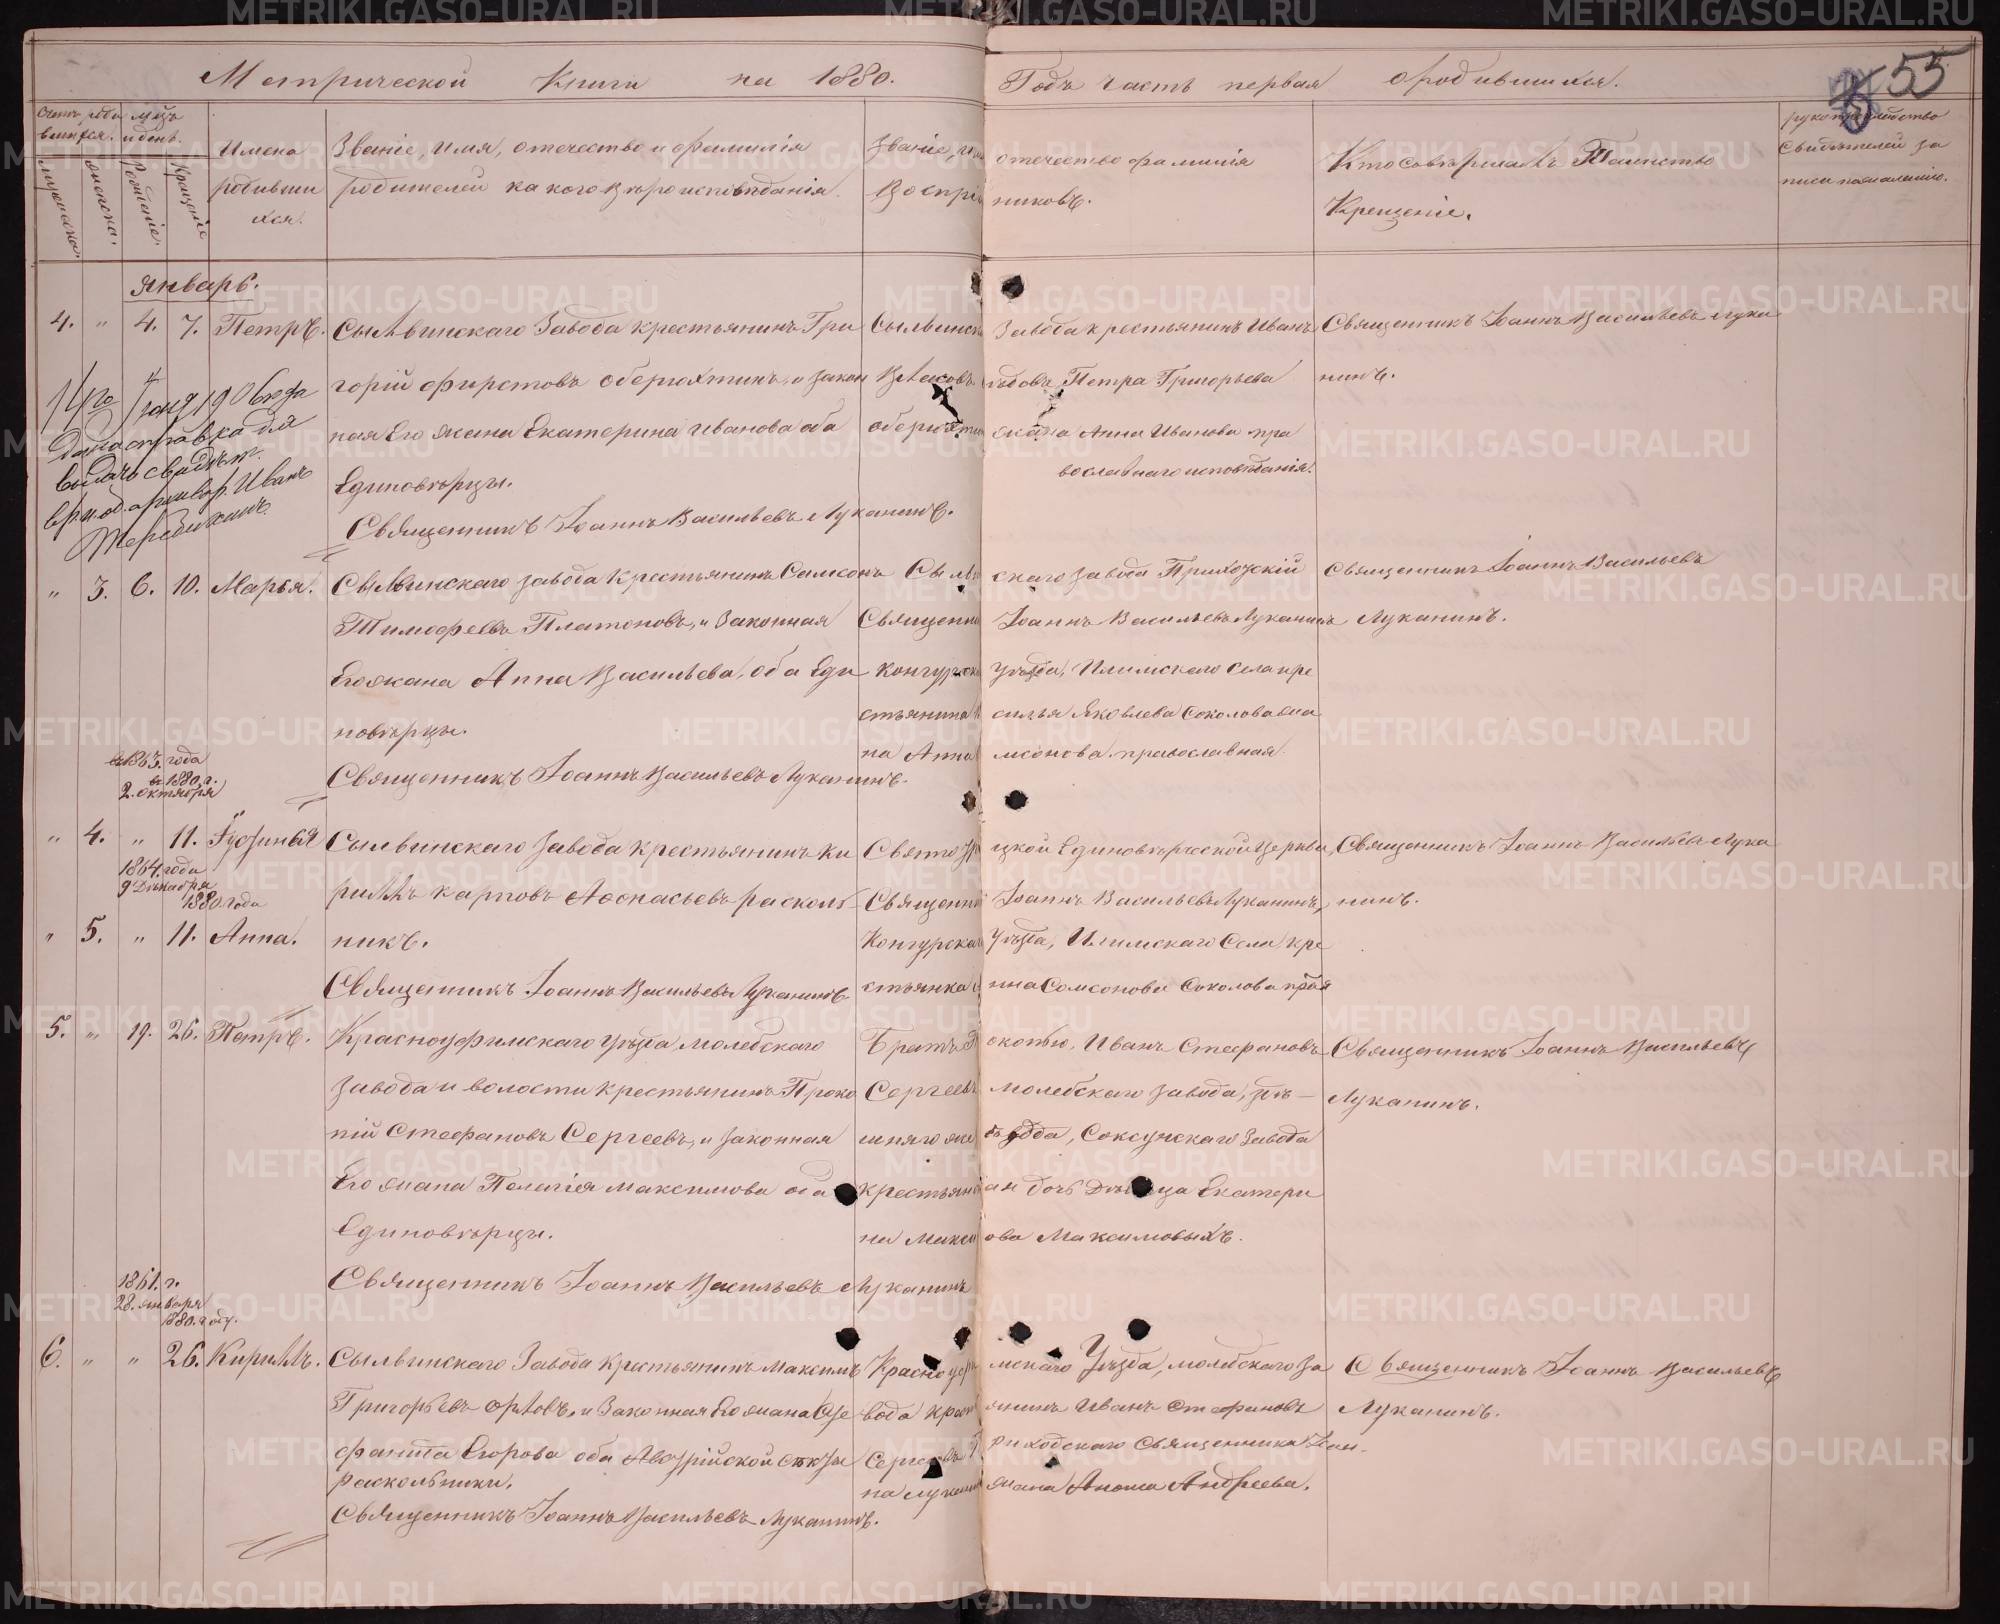 Метрической Книги на 1880. Годъ часть первая о родившихся.
55
Счетъ родившихся. мѣсяцъ и день.
мужеска. женска. Рожденіе. Крещеніе
Имена родившихся.
Званіе, имя, отечество и фамилія
родителей какого вѣроисповѣданія.
Званіе, имя отечество фамилія
Воспріемниковъ.
Кто совершалъ Таинство
Крещеніе.
рукоприкладство
Свидѣтелей записи по желанію.
январь.
4. " 4. 7. Петръ.
Сылвинскаго Завода крестьянинъ Гри
горій Фирстовъ Оберюхтинъ, и закон
ная Его жена Екатерина Иванова оба
Единовѣрцы.
Священникъ Іоаннъ Васильевъ Луканинъ.
Сылвинск Завода крестьянинъ Иванъ
Власовъ Петра Григорьева
оберюхтин жена Анна Иванова пра
вославнаго исповѣданія.
Священникъ Іоаннъ Васильевъ Лука
нинъ.
1906 года
дана справка для
выдачи свидѣт.
Иванъ
" 3. 6. 10. Марья.
Сылвинскаго завода Крестьянинъ Самсонъ
Тимофеевъ Платоновъ, и Законная
Его жена Анна Васильева, оба Еди
новѣрцы.
Священникъ Іоаннъ Васильевъ Луканинъ.
Сылвинскаго завода Приходскій
Священни Іоаннъ Васильевъ Луканинъ
Конгурска Уѣзда, Илимскаго Села кре
стьянина Василья Яковлева Соколова жена
на Анна Самсонова православная
Священникъ Іоаннъ Васильевъ
Луканинъ.
1863. года
2. октября
1880. г.
" 4. " 11. Руфинья
Сылвинскаго Завода крестьянинъ Ки
риллъ карповъ Афонасьевъ расколь
никъ.
Священникъ Іоаннъ Васильевъ Луканинъ
1864. года
9 Декабря
1880 года
" 5. " 11. Анна.
Свято Троицкой Единовѣрческой Церкви,
Священни Іоаннъ Васильевъ Луканинъ,
Конгурска Уѣзда, Илимскаго Села, кре
стьянка Анна Самсонова Соколова
Священникъ Іоаннъ Васильевъ Лука
нинъ.
5. " 19. 26. Петръ.
Красноуфимскаго Уѣзда, молебскаго
Завода и волости крестьянинъ Проко
пій Стефановъ Сергеевъ, и законная
Его жена Пелагія Максимова оба
Единовѣрцы.
Священникъ Іоаннъ Васильевъ Луканинъ
Братъ Иванъ Стефановъ
Сергеевъ Молебскаго завода,
Соксунскаго Завода
крестьян дочь Дѣвица Екатери
на Максимова Максимовыхъ.
Священникъ Іоаннъ Васильевъ
Луканинъ.
1861. г.
28. января
1880. году.
6. " " 26. Кириллъ.
Сылвинскаго Завода крестьянинъ Максимъ
Григорьевъ орловъ, и Законная Его жана
Егорова оба Австрійской секты
раскольники.
Священникъ Іоаннъ Васильевъ Луканинъ.
Красноуфимскаго Уѣзда, молебскаго За
вода крестьянинъ Иванъ Стефановъ
Сергеевъ Приходскаго Священника Іоан
на Луканин жана Анна Андреева.
Священникъ Іоаннъ Васильевъ
Луканинъ.
METRIKI.GASO-URAL.RU